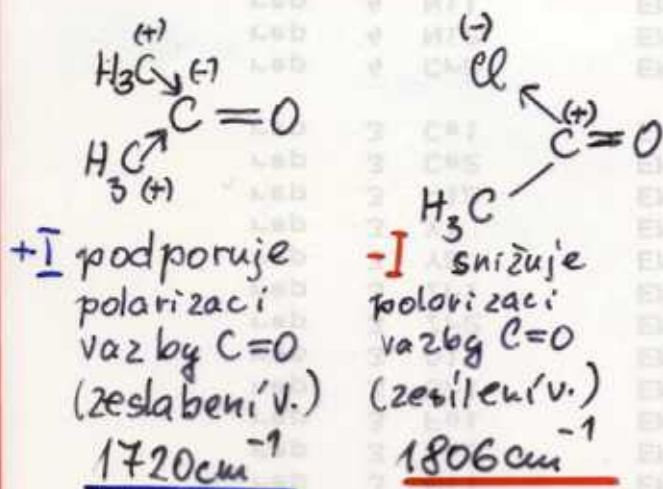 (+)
H₃C (-)
C=O
H₃C
(+)
+I podporuje
polarizaci
vazby C=O
(zeslabení v.)
1720cm⁻¹
(-)
Cl
(+)
C=O
H₃C
-I snižuje
polorizaci
vazby C=O
(zesílení v.)
1806cm⁻¹